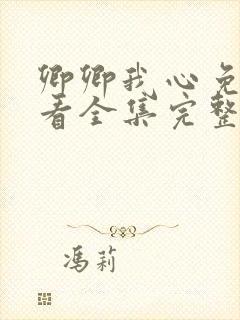 卿卿我心免
看全集完整
冯莉